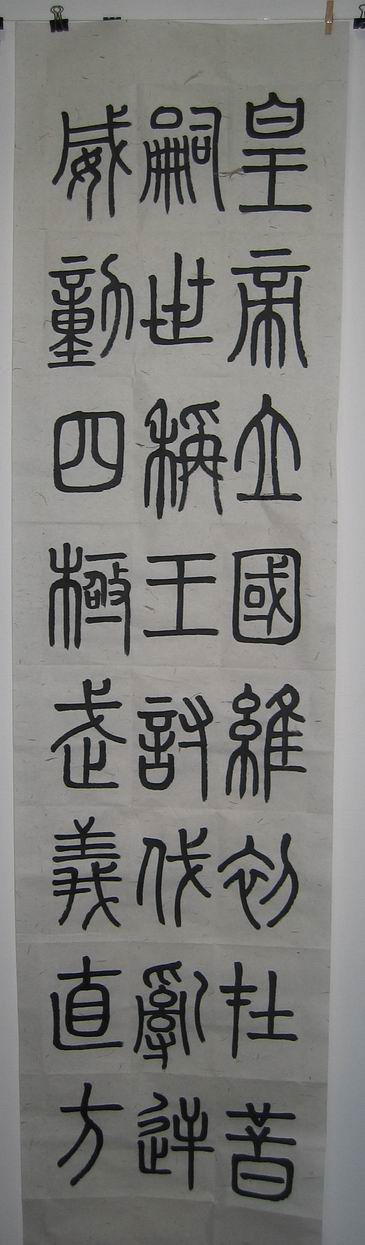 皇帝立國維初在昔
嗣世稱王討伐亂逆
威動四極武義直方